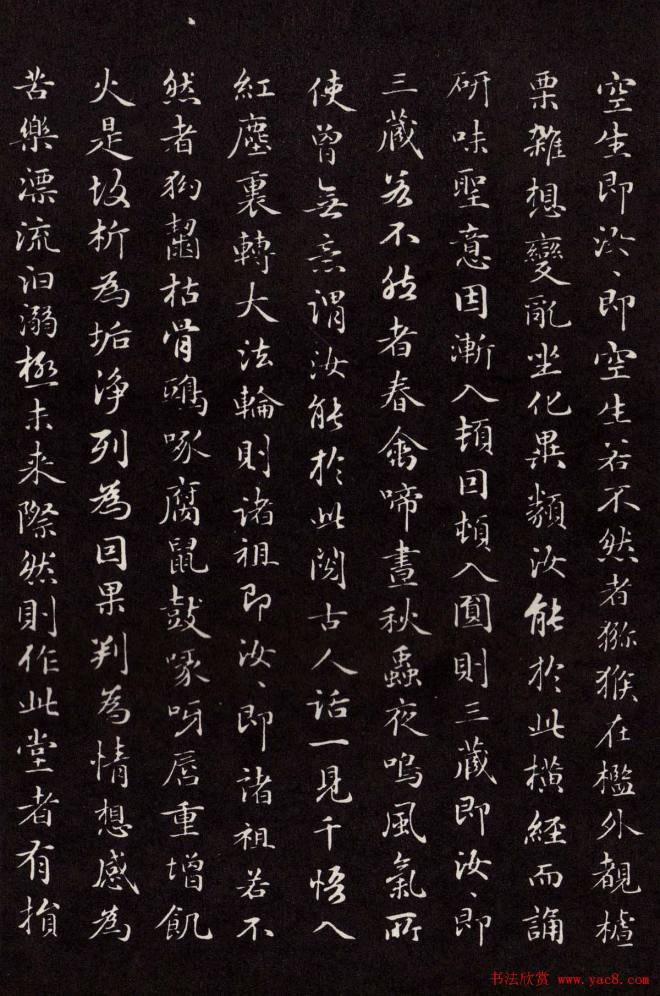 空生即汝〻即空生若不然者猕猴在槛外覩樝
栗雜想變亂坐化異類汝能於此横經而誦
研味聖意因漸入頓因頓入圓則三藏即汝〻即
三藏若不然者春禽啼晝秋蟲夜鳴風氣所
使曾無意謂汝能於此閱古人話一見千悟入
紅塵裏轉大法輪則諸祖即汝〻即諸祖若不
然者狗齧枯骨鴟啄腐鼠鼓喙呀唇重增飢
火是故析為垢淨列為因果判為情想感為
苦樂漂流汩溺極未来際然則作此堂者有損
书法欣赏 www.yac8.com